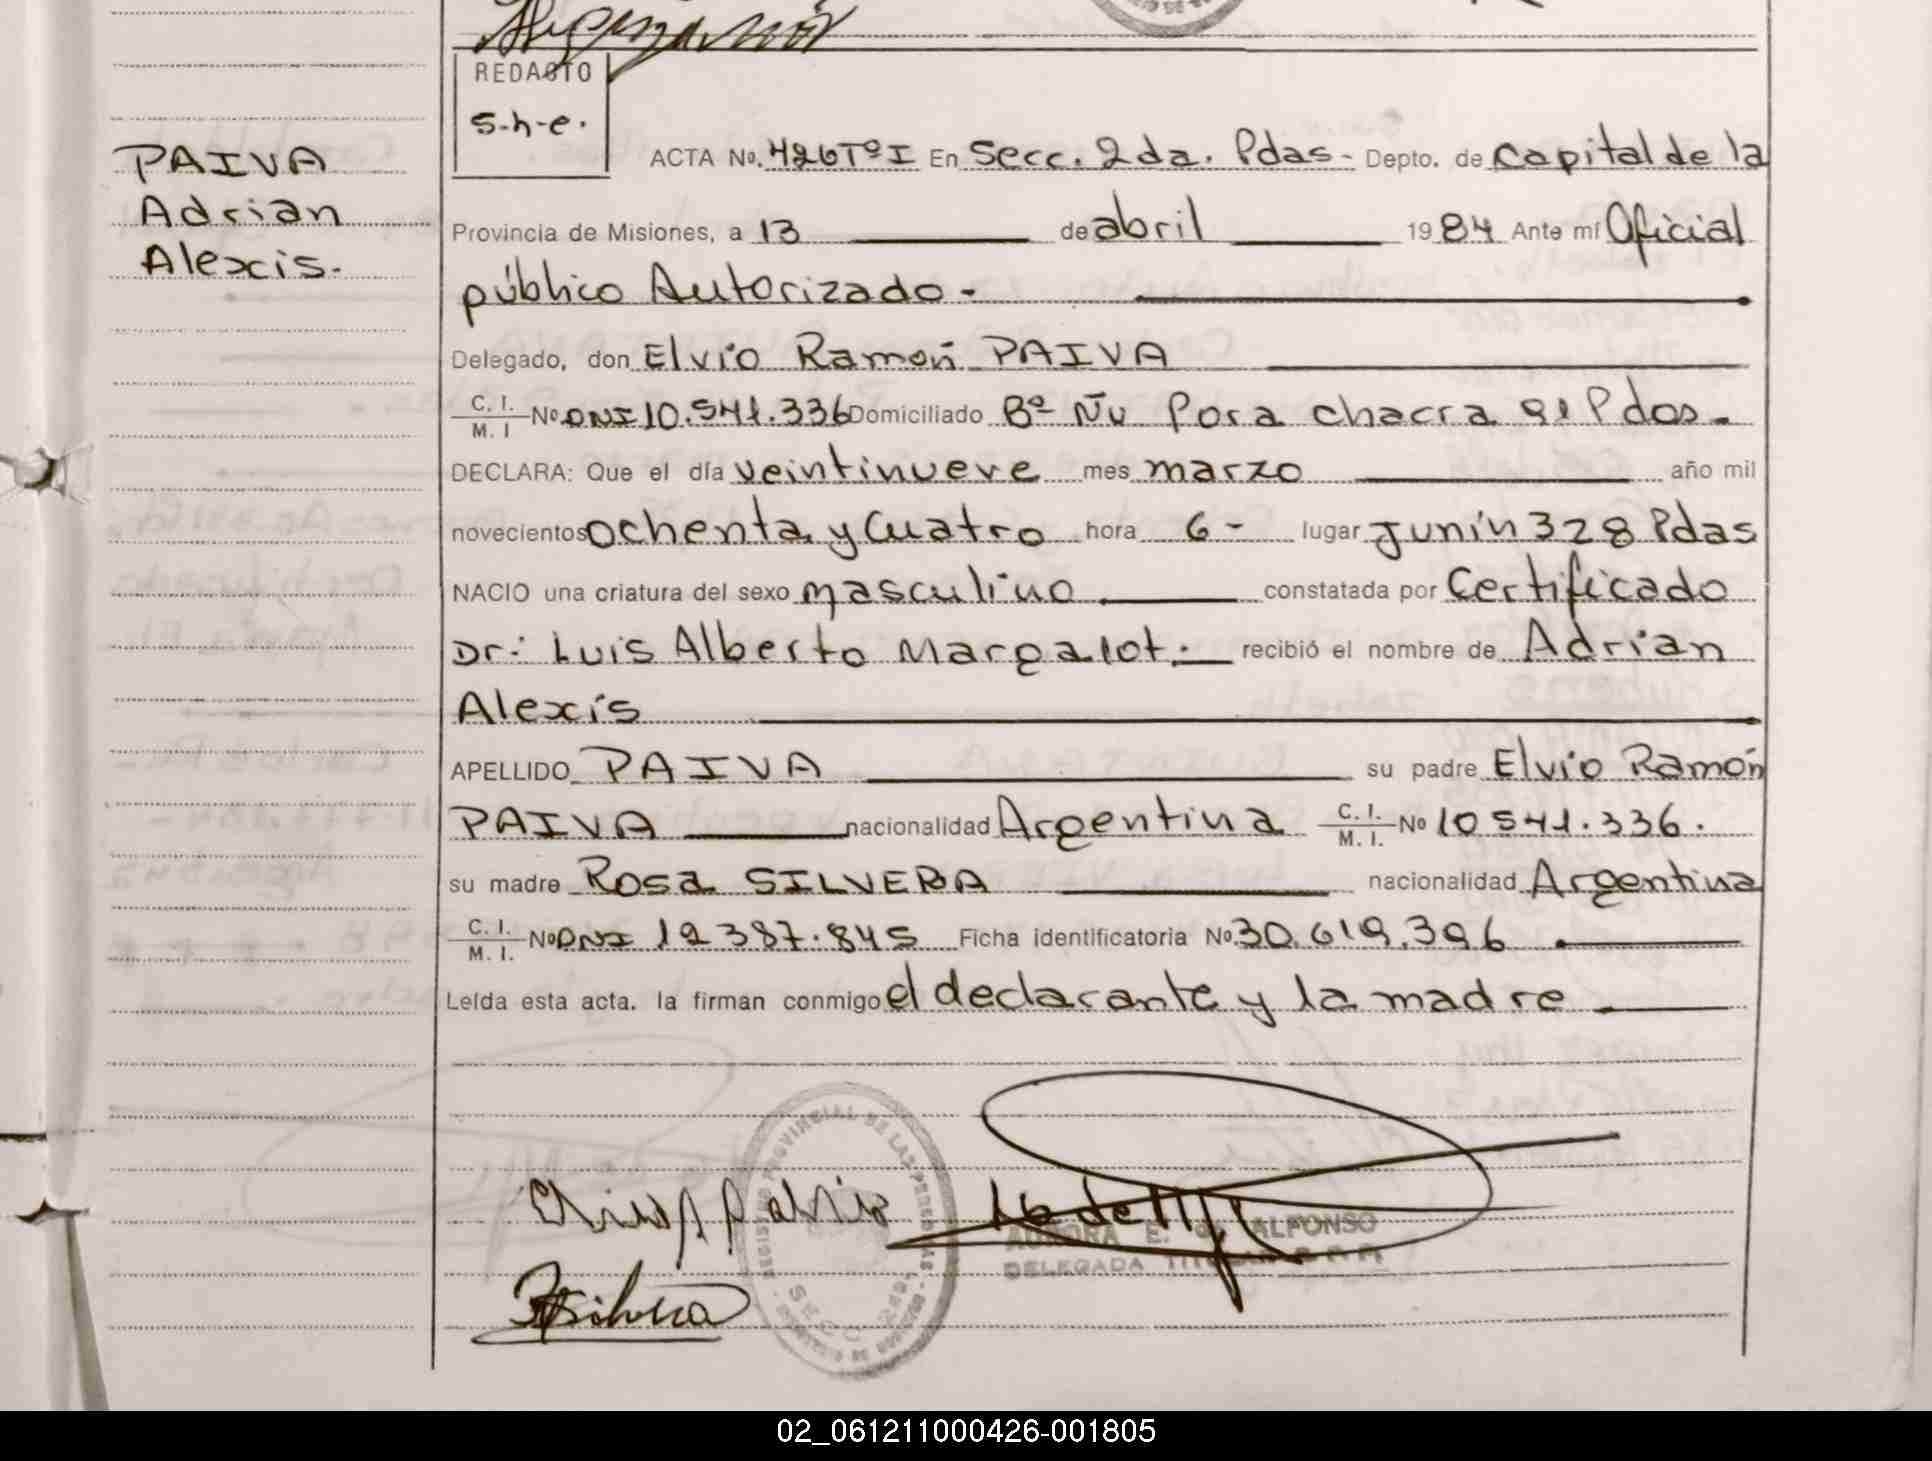 REDACTO
s-h-e.
PAIVA
Adrian
Alexis.
ACTA No. 426 Tº I En Secc. 2da. Pdas- Depto. de Capital de la
Provincia de Misiones, a 13 de abril 1984 Ante mí Oficial
público Autorizado-
Delegado, don Elvio Ramón PAIVA
C. I. / M. I No DNI 10.541.336 Domiciliado Bº Ñu Pora chacra 91 Pdas.
DECLARA: Que el día veintinueve mes marzo año mil
novecientos ochenta y Cuatro hora 6- lugar Junín 328 Pdas
NACIO una criatura del sexo masculino constatada por Certificado
Dr: Luis Alberto Margalot. recibió el nombre de Adrian
Alexis
APELLIDO PAIVA su padre Elvio Ramón
PAIVA nacionalidad Argentina C. I. / M. I. No 10 541.336.
su madre Rosa SILVERA nacionalidad Argentina
C. I. / M. I. No DNI 12 387.845 Ficha identificatoria No 30.619.396
Leída esta acta. la firman conmigo el declarante y la madre
REGISTRO PROVINCIAL DE LAS PERSONAS
SECC. 2da.
AURORA E. ALFONSO
DELEGADA TITULAR
RSilvera
02_061211000426-001805